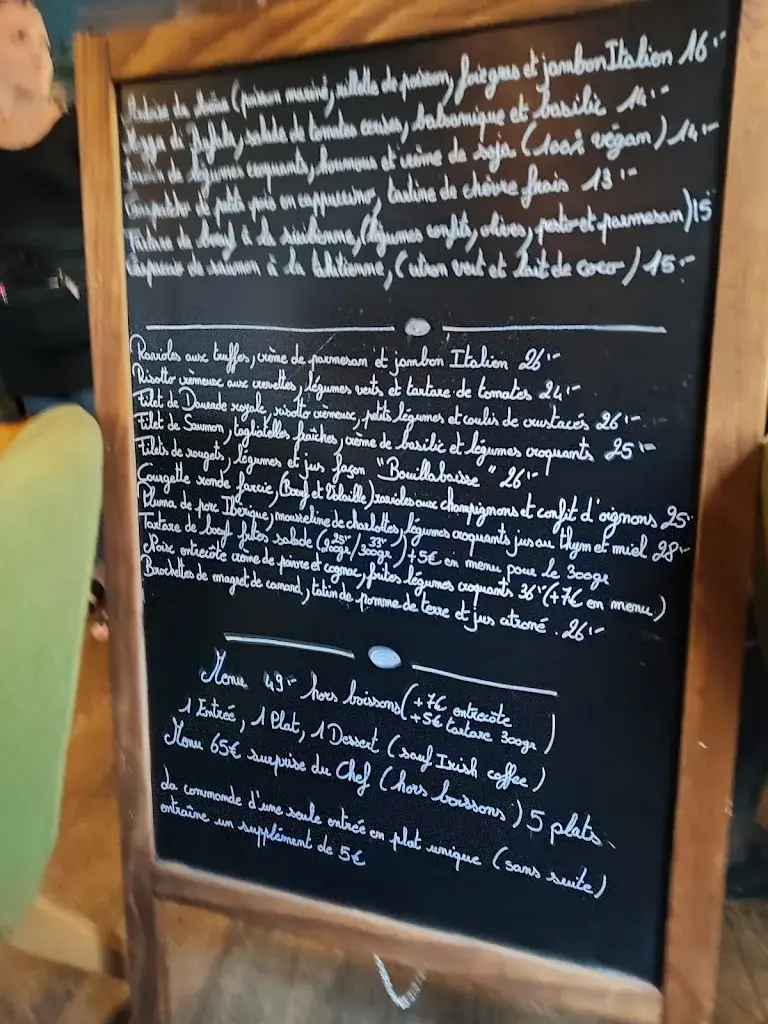 (poisson mariné, rillette de poisson, foie gras et jambon Italien 16.-
di Bufala, salade de tomates cerises, balsamique et basilic 14.-
de légumes croquants, houmous et crème de soja (100% végan) 14.-
Gaspacho de petits pois en cappuccino, tartine de chèvre frais 13.-
Tartare de bœuf à la sicilienne, (légumes confits, olives, pesto et parmesan) 15
de saumon à la tahitienne, (citron vert et lait de coco) 15.-
Ravioles aux truffes, crème de parmesan et jambon Italien 26.-
Risotto crémeux aux crevettes, légumes verts et tartare de tomates 24.-
Filet de Daurade royale, risotto crémeux, petits légumes et coulis de crustacés 26.-
Filet de Saumon, tagliatelles fraîches, crème de basilic et légumes croquants 25.-
Filets de rougets, légumes et jus façon "Bouillabaisse" 26.-
Courgette ronde farcie, (Bœuf et Volaille) ravioles aux champignons et confit d'oignons 25.-
Pluma de porc Ibérique, mousseline de charlottes, légumes croquants jus au thym et miel 28.-
Tartare de bœuf frites salade (200gr 25.- / 300gr 33.-) +5€ en menu pour le 300gr
Noix entrecôte crème de poivre et cognac, frites légumes croquants 36.- (+7€ en menu)
Brochettes de magret de canard, tatin de pomme de terre et jus citronné. 26.-
Menu 49.- hors boissons (+7€ entrecôte
+5€ tartare 300gr)
1 Entrée, 1 Plat, 1 Dessert (sauf Irish coffee)
Menu 65€ surprise du Chef (hors boissons) 5 plats.
La commande d'une seule entrée en plat unique (sans suite)
entraîne un supplément de 5€